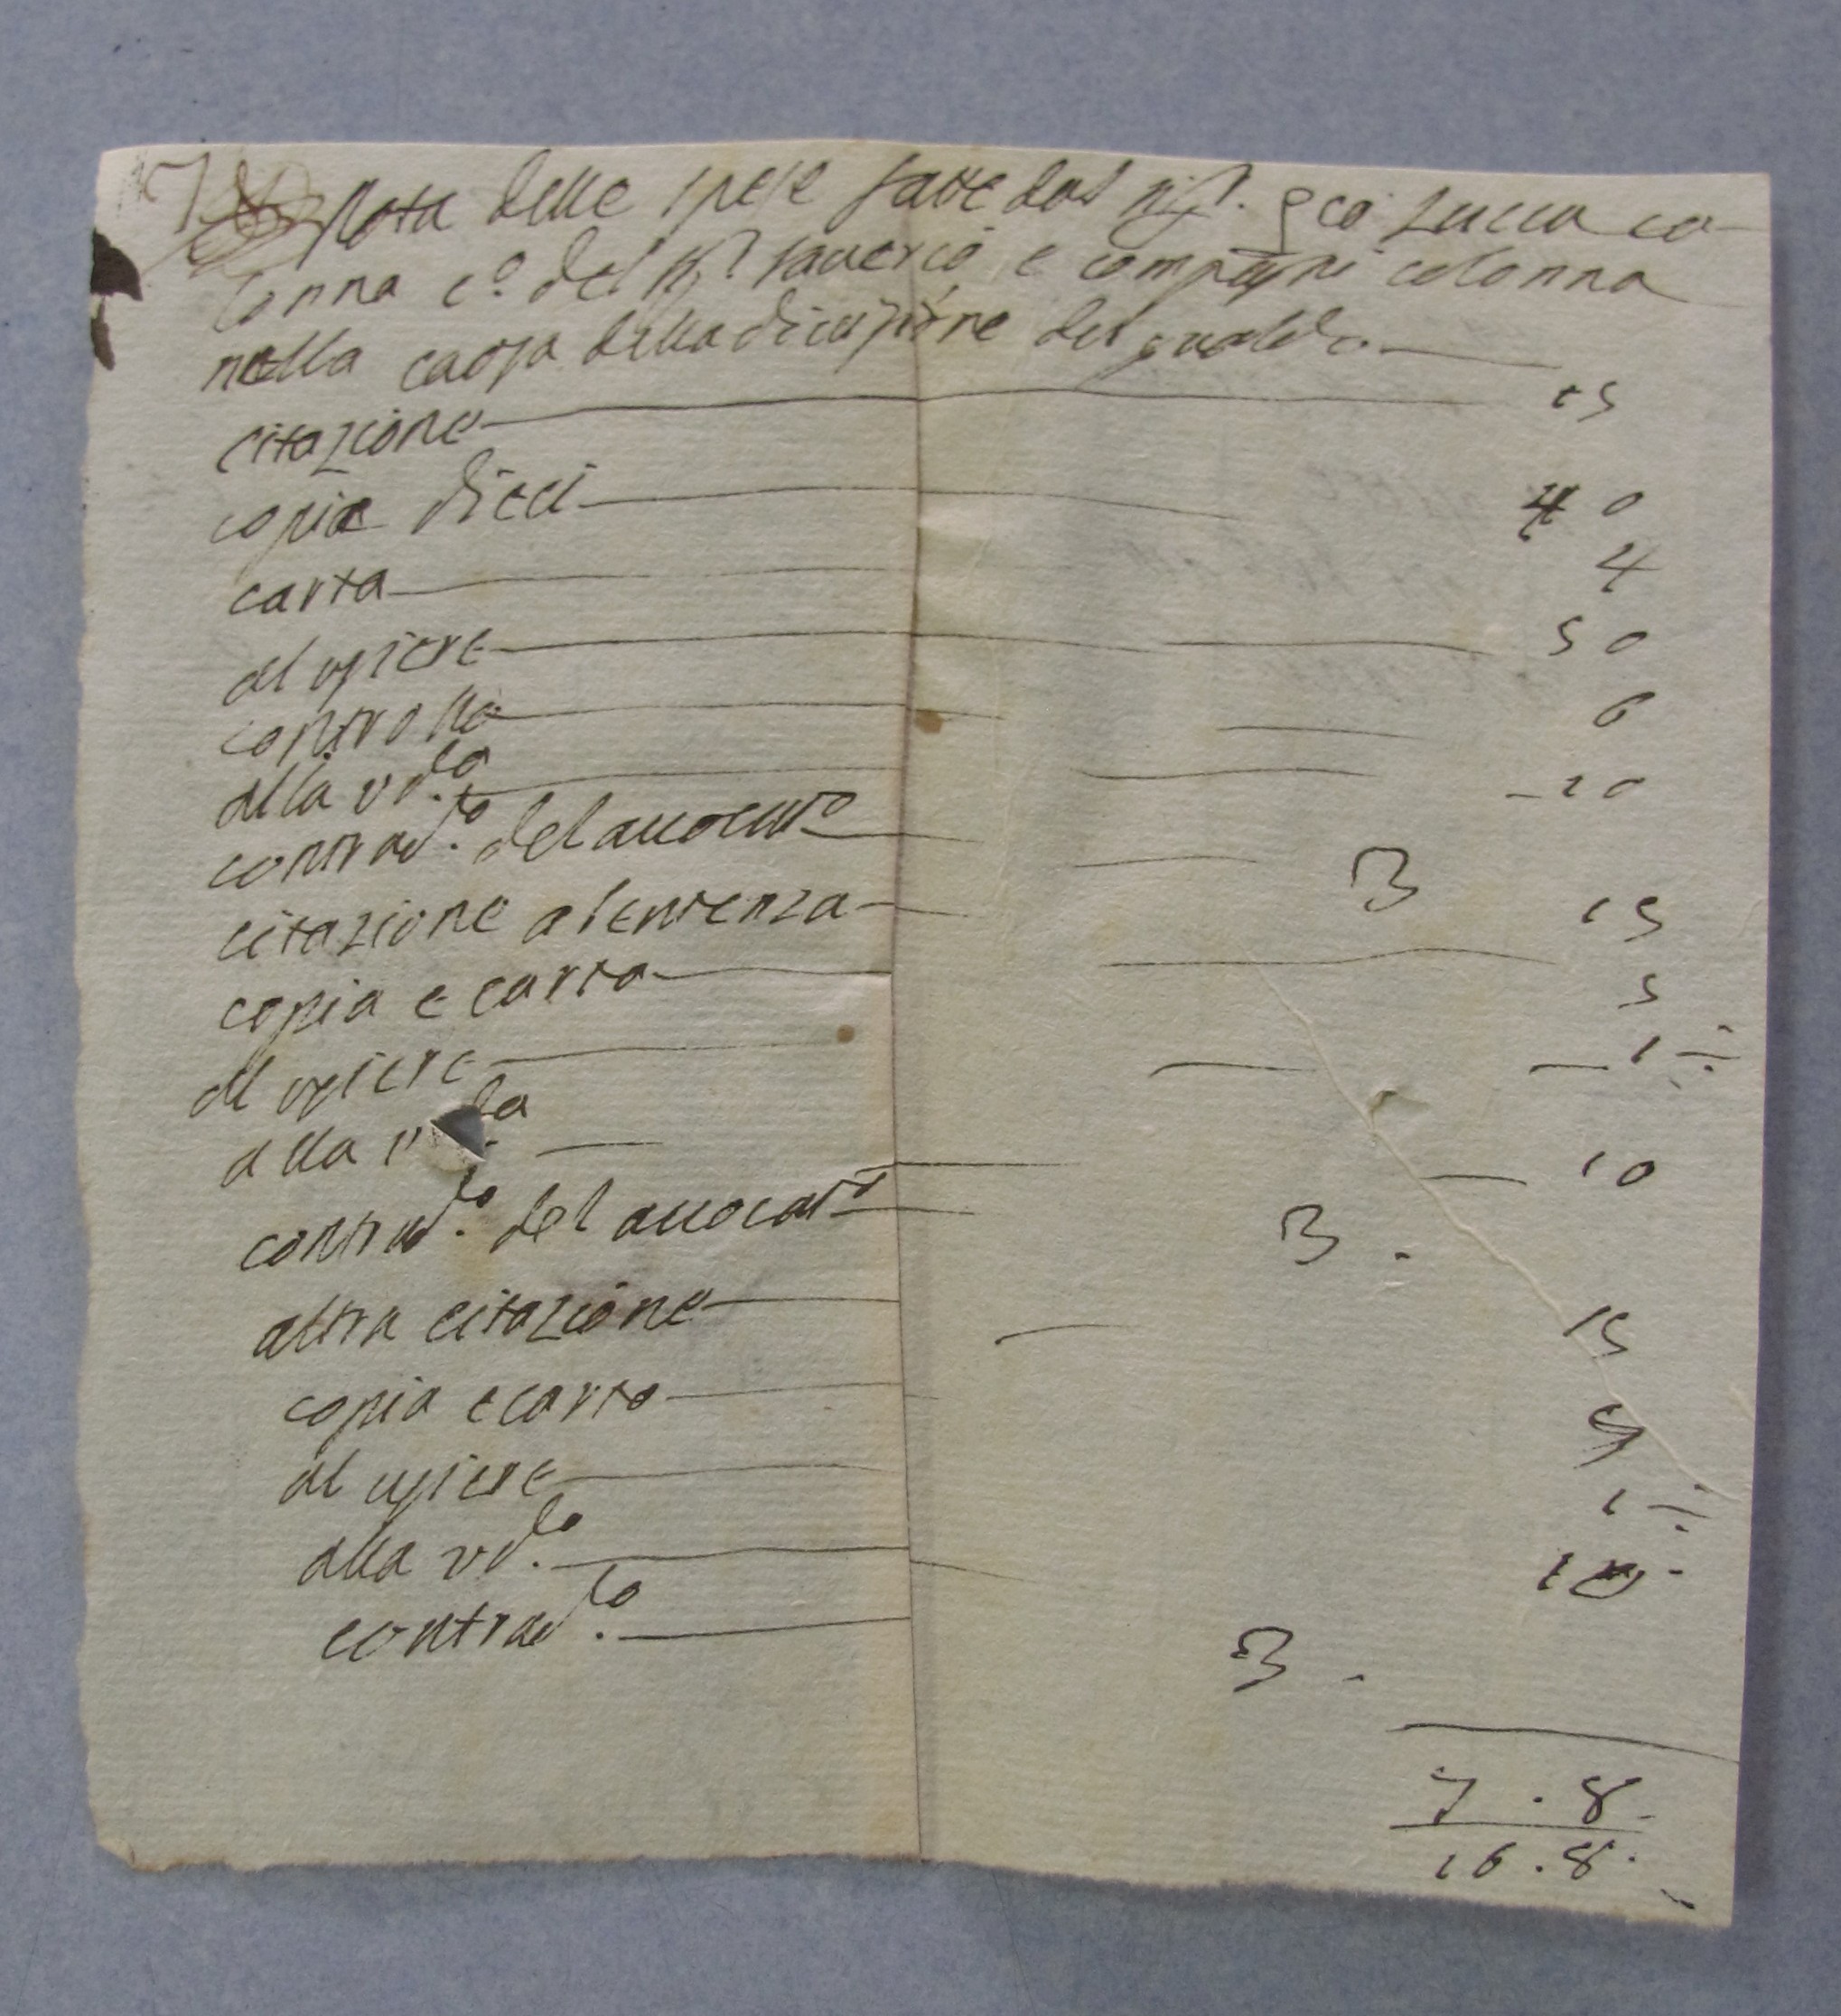 Nota delle spese fatte dal sig.r gio lucca co-
lonna c.o del sig.r saverio e compagni colonna
nella caosa della divisione del
citazione 15
copie dieci 40
carta 4
al usiere 50
controlle 6
alla ud.za 20
contrad.o del avocato 3
citazione a sentenza 15
copia e carta 5
al usiere 1 ÷
alla 10
contrad.o del avocato 3 .
altra citazione 15
copia e carta 5
al usiere 1 ÷
alla ud.za 10 -
contrad.o 3 .
7 . 8
16 . 8 .